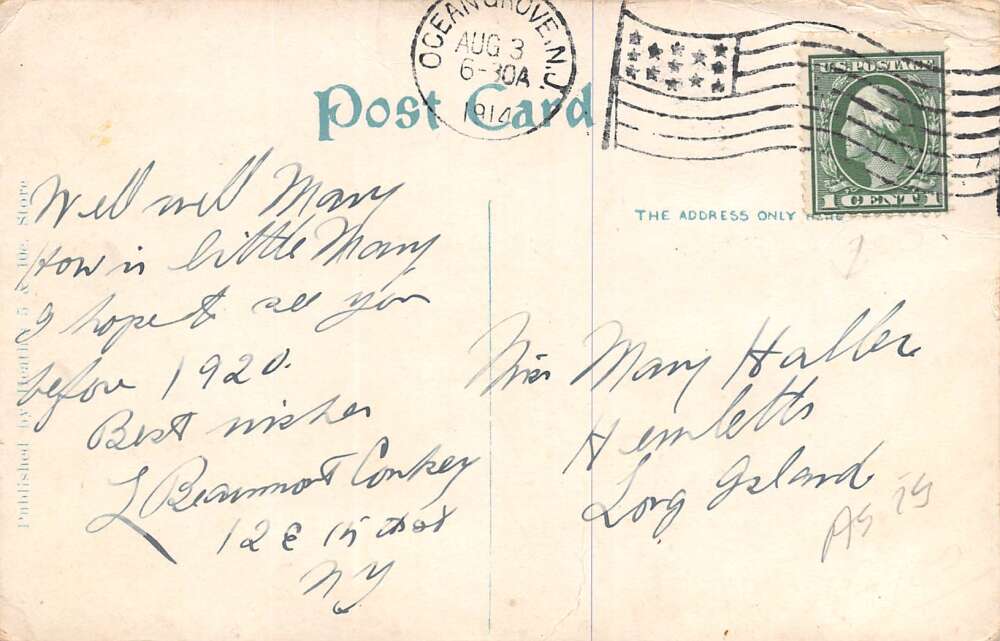 OCEAN GROVE, N.J.
AUG 3
6-30A
1914
U.S. POSTAGE
1 CENT 1
Post Card
THE ADDRESS ONLY HERE
Well well Mary
How is little Mary
I hope to see you
before 1920.
Best wishes
L Beaumont Conkey
12 E 15th St
NY
Miss Mary Haller
Hewletts
Long Island
Published by Heath's 5 & 10c. Store